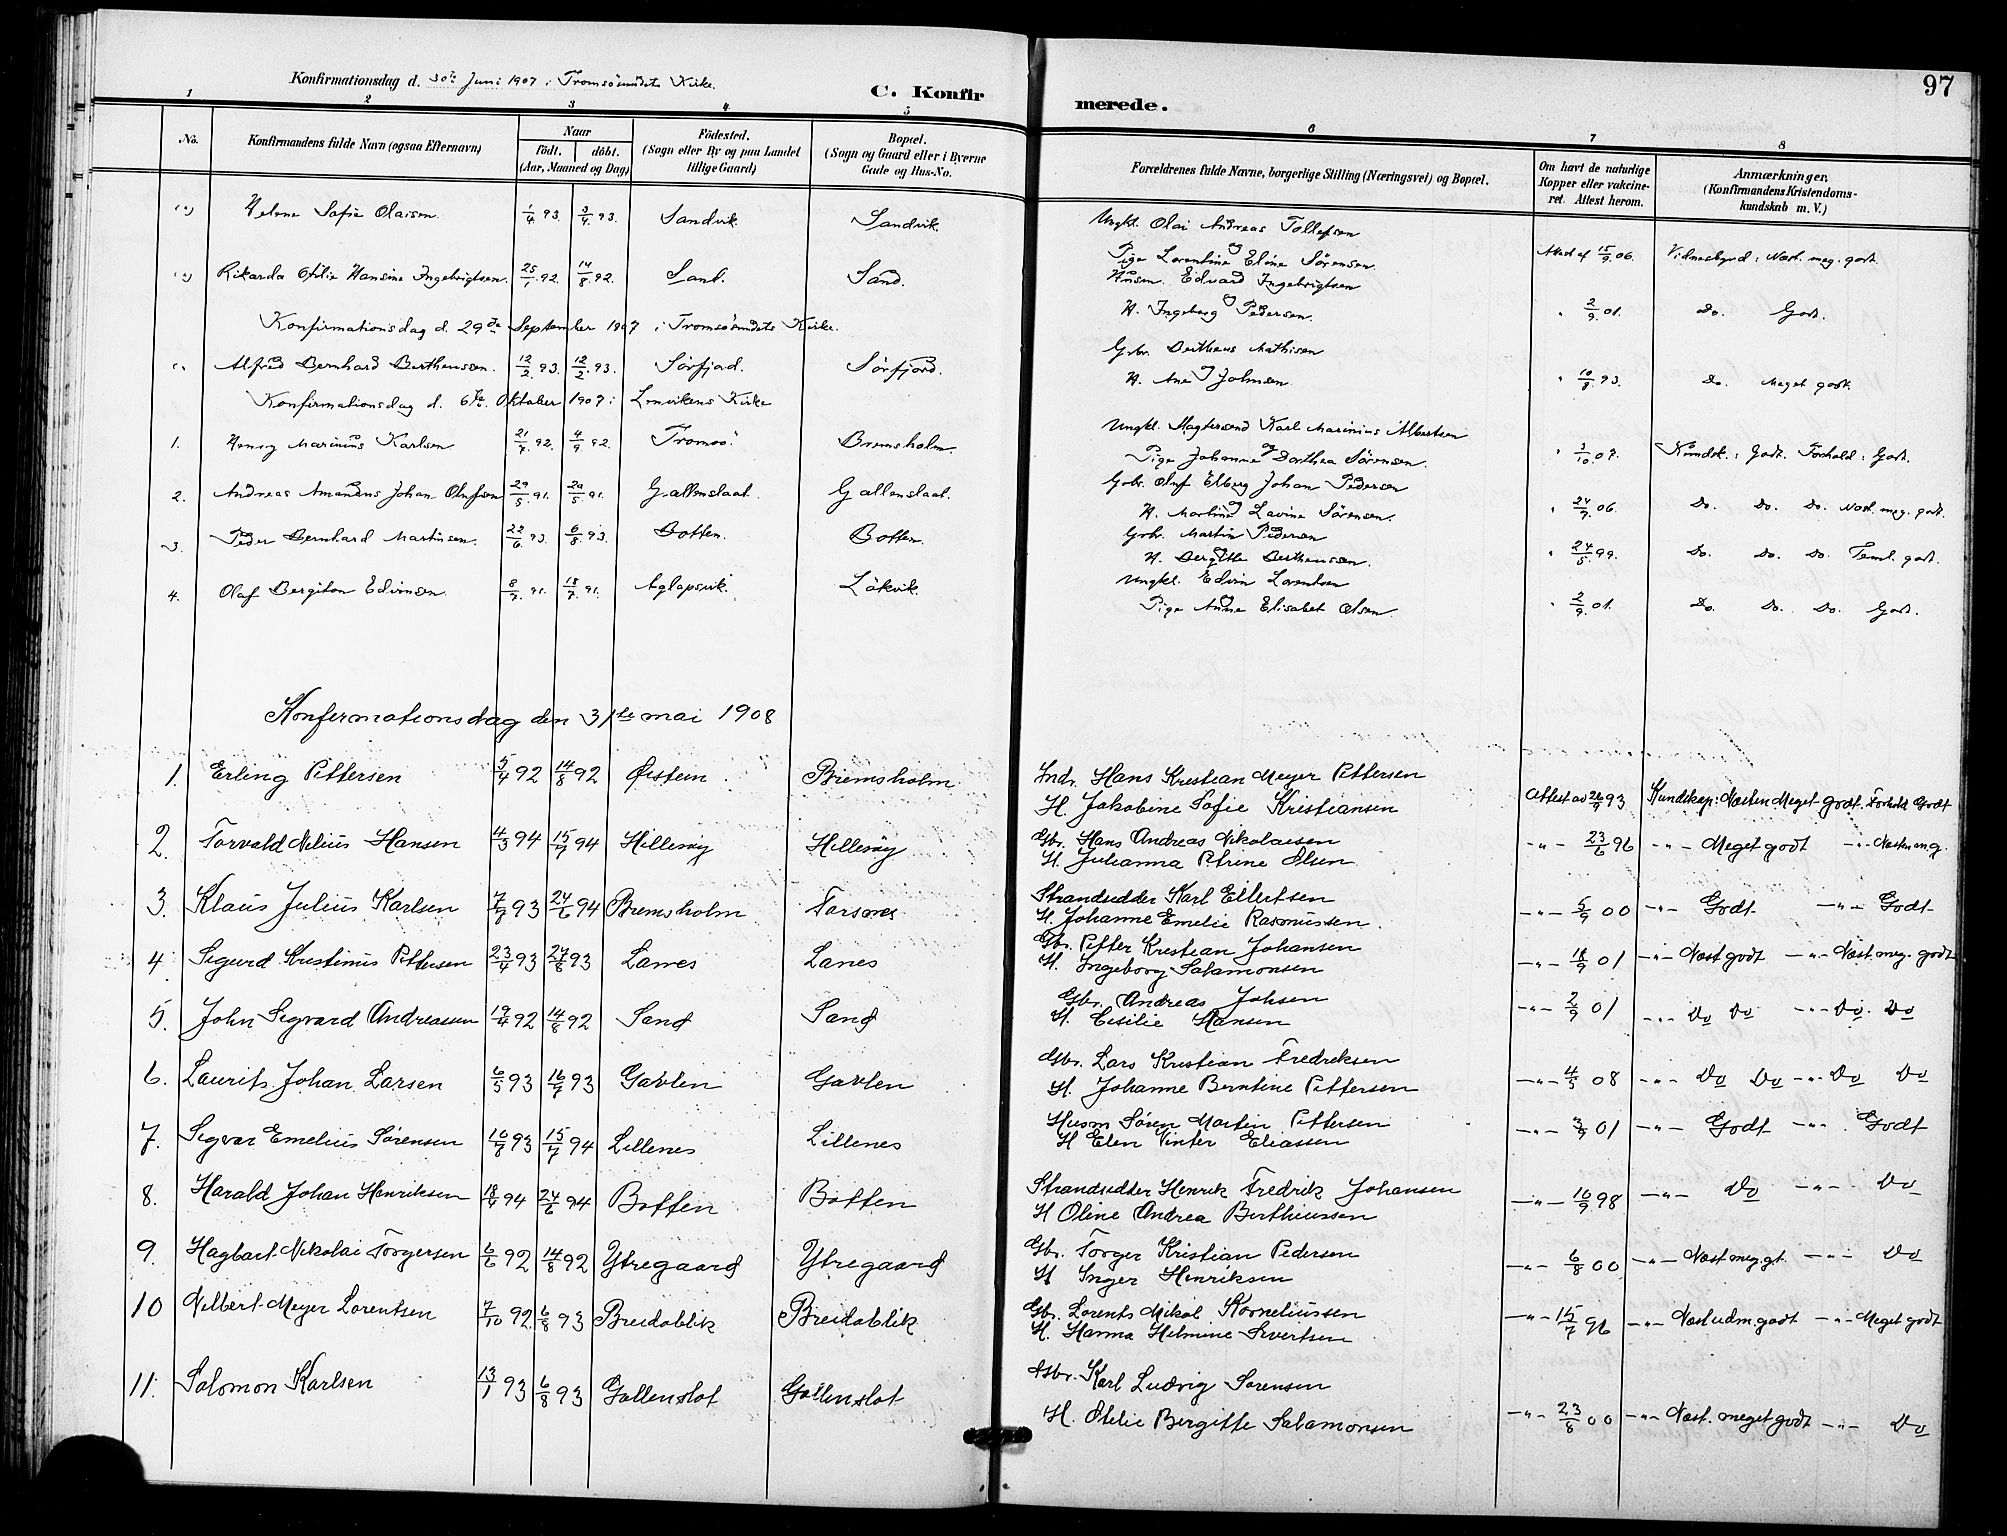 97
Konfirmationsdag d. 30te Juni 1907 i Tromsösundets Kirke.
C. Konfirmerede.
1 2 3 4 5 6 7 8
No. | Konfirmandens fulde Navn (ogsaa Efternavn) | Naar födt. döbt. (Aar, Maaned og Dag) | Födested. (Sogn eller By og paa Landet tillige Gaard) | Bopæl. (Sogn og Gaard eller i Byerne Gade og Hus-No. | Forældrenes fulde Navne, borgerlige Stilling (Næringsvei) og Bopæl. | Om havt de naturlige Kopper eller vakcineret. Attest herom. | Anmærkninger. (Konfirmandens Kristendomskundskab m. V.)
Helene Sofie Olaisen. 1/4 93. 3/4 93. Sandvik Sandvik. Ungkl. Olai Andreas Tollefsen og
Pige Lorentine Eline Sörensen. Attest af 15/9 06. Vidnesbyrd: Næst. meg. godt.
Rikarda Otilie Hansine Ingebrigtsen. 25/1 92. 14/8 92. Sand. Sand. Husm. Edvard Ingebrigtsen og
H. Ingeborg Pedersen. " 2/9 01. Do. Godt.
Konfirmationsdag d. 29de September 1907 i Tromsösundets Kirke.
Alfred Bernhard Bertheussen. 12/2 93. 12/2 93. Sörfjord. Sörfjord. Gbr. Bertheus Mathisen og
H. Ane Johnsen. " 10/8 93. Do. Meget godt.
Konfirmationsdag d. 6te Oktober 1907 i Lenvikens Kirke
1. Henry Marinius Karlsen 21/7 92. 4/9 92. Tromsö. Bremsholm. Ungkl. Karl Marinius Albertsen og
Pige Johanne Dorthea Sörensen. " 3/10 07. Kundsk.: Godt. Forhold: Godt.
2. Andreas Amandus Johan Olufsen 29/5 91. 29/5 91. Gallenslaat. Gallenslaat. Gbr. Oluf Elberg Johan Pedersen og
H. Martine Lavine Sörensen. " 24/9 06. Do. Do. Do. Næst. meg. godt.
3. Peder Bernhard Martinsen. 22/6 93. 6/8 93. Botten. Botten. Gbr. Martin Pedersen og
H. Bergitte Bertheussen. " 24/5 99. Do. Do. Do. Teml. godt.
4. Olaf Bergiton Edvinsen. 8/7 91. 18/7 91. Aglapsvik. Läkvik. Ungkl. Edvin Lorentsen og
Pige Anna Elisabet Olsen. " 2/9 01. Do. Do. Do. Godt.
Konfermationsdag den 31te mai 1908
1. Erling Pettersen 5/4 92 14/8 92 Øistein Bremsholm Indr. Hans Kristian Meyer Pettersen
H. Jakobine Sofie Kristiansen Attest av 26/9 93 Kundskap: Næsten Meget godt. Forhold Godt
2. Torvald Nelius Hansen 4/3 94 15/7 94 Hillesøy Hillesøy Gbr. Hans Andreas Nikolaisen
H. Julianna Petrine Olsen — " — 23/6 96 — " — Meget godt — " — Næsten m.g.
3. Klaus Julius Karlsen 7/9 93 24/6 94 Bremsholm Torsnes Strandsidder Karl Ellertsen
H. Johanne Emelie Rasmussen. — " — 5/9 00 — " — Godt — " — Godt
4 Sigurd Kristinus Pettersen 23/4 93 27/8 93 Lanes Lanes Gbr. Petter Kristian Johansen
H. Ingeborg Salamonsen — " — 18/9 01 — " — Næst godt — " — Næst. meg. godt
5. John Segvard Andreassen 19/4 92 14/8 92 Sand Sand Gbr. Andreas Johsen
H. Cesilie Hansen — " — 2/9 01 — " — Do Do — " — Do. Do
6. Laurits Johan Larsen 6/5 93 16/7 93 Gavlen Gavlen Gbr. Lars Kristian Fredreksen
H. Johanne Berntine Pettersen — " — 4/5 08 — " — Do Do — " — Do Do
7. Segvar Emelius Sørensen 10/8 93 15/7 94 Lillenes Lillenes Husm Søren Marten Pettersen
H Elen Vinter Eliassen — " — 3/9 01 — " — Godt — " — Godt
8. Harald Johan Henriksen 18/4 94 24/6 94 Botten Botten Strandsidder Henrik Fredrik Johansen
H Oline Andrea Bertheussen — " — 10/9 98 — " — Do — " — Do
9. Hagbart Nikolai Torgersen 6/6 92 14/8 92 Ytregaard Ytregaard Gbr. Torger Kristian Pedersen
H Inger Henriksen — " — 6/8 00 — " — Næst meg. gt. — " — Do
10 Nelbert Meyer Lorentsen 7/10 92 6/8 93 Breidablik Breidablik Gbr. Lorents Mikal Korneliussen
H. Hanna Helmine Sivertsen — " — 15/7 96 — " — Næst udm. godt — " — Meget godt
11. Salomon Karlsen 13/1 93 6/8 93 Gallenslot Gallenslot Gbr. Karl Ludvig Sørensen
H. Otelie Birgitte Salamonsen — " — 23/8 00 — " — Næst. meget godt — " — Do